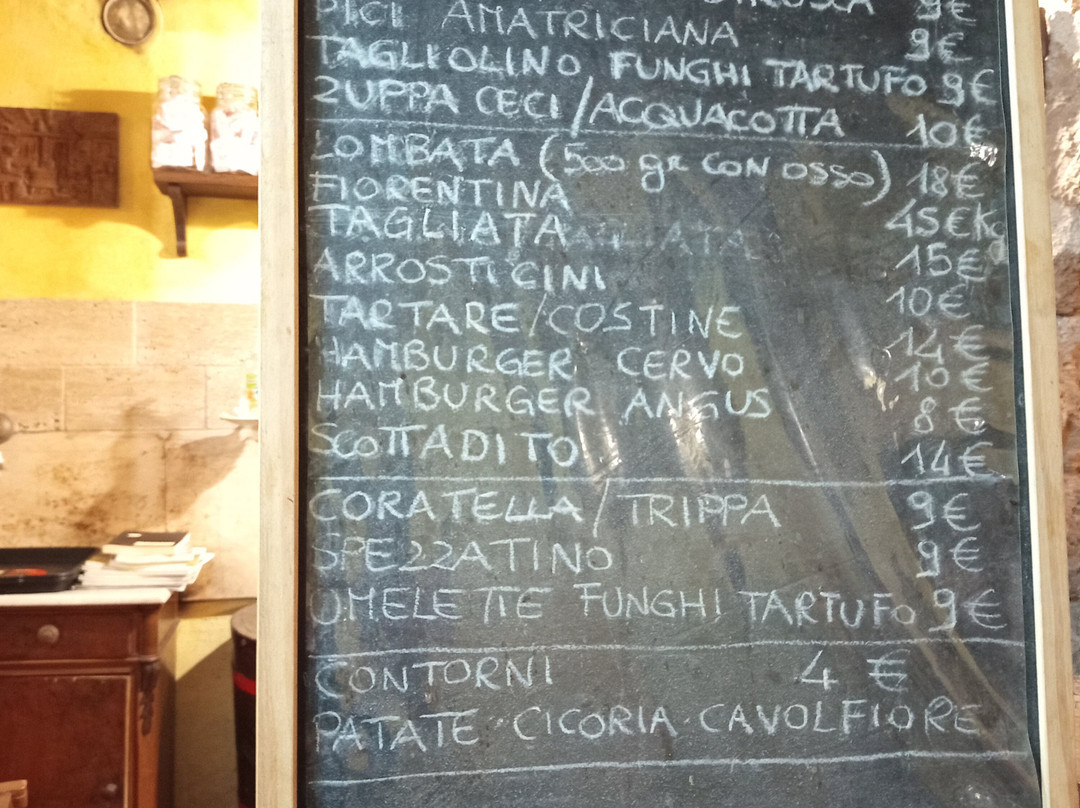 9€
PICI AMATRICIANA 9€
TAGLIOLINO FUNGHI TARTUFO 9€
ZUPPA CECI/ACQUACOTTA 10€
LOMBATA (500 gr CON OSSO) 18€
FIORENTINA 45€Kg
TAGLIATA 15€
ARROSTICINI 10€
TARTARE/COSTINE 14€
HAMBURGER CERVO 10€
HAMBURGER ANGUS 8€
SCOTTADITO 14€
CORATELLA/TRIPPA 9€
SPEZZATINO 9€
OMELETTE FUNGHI TARTUFO 9€
CONTORNI 4 €
PATATE · CICORIA · CAVOLFIORE